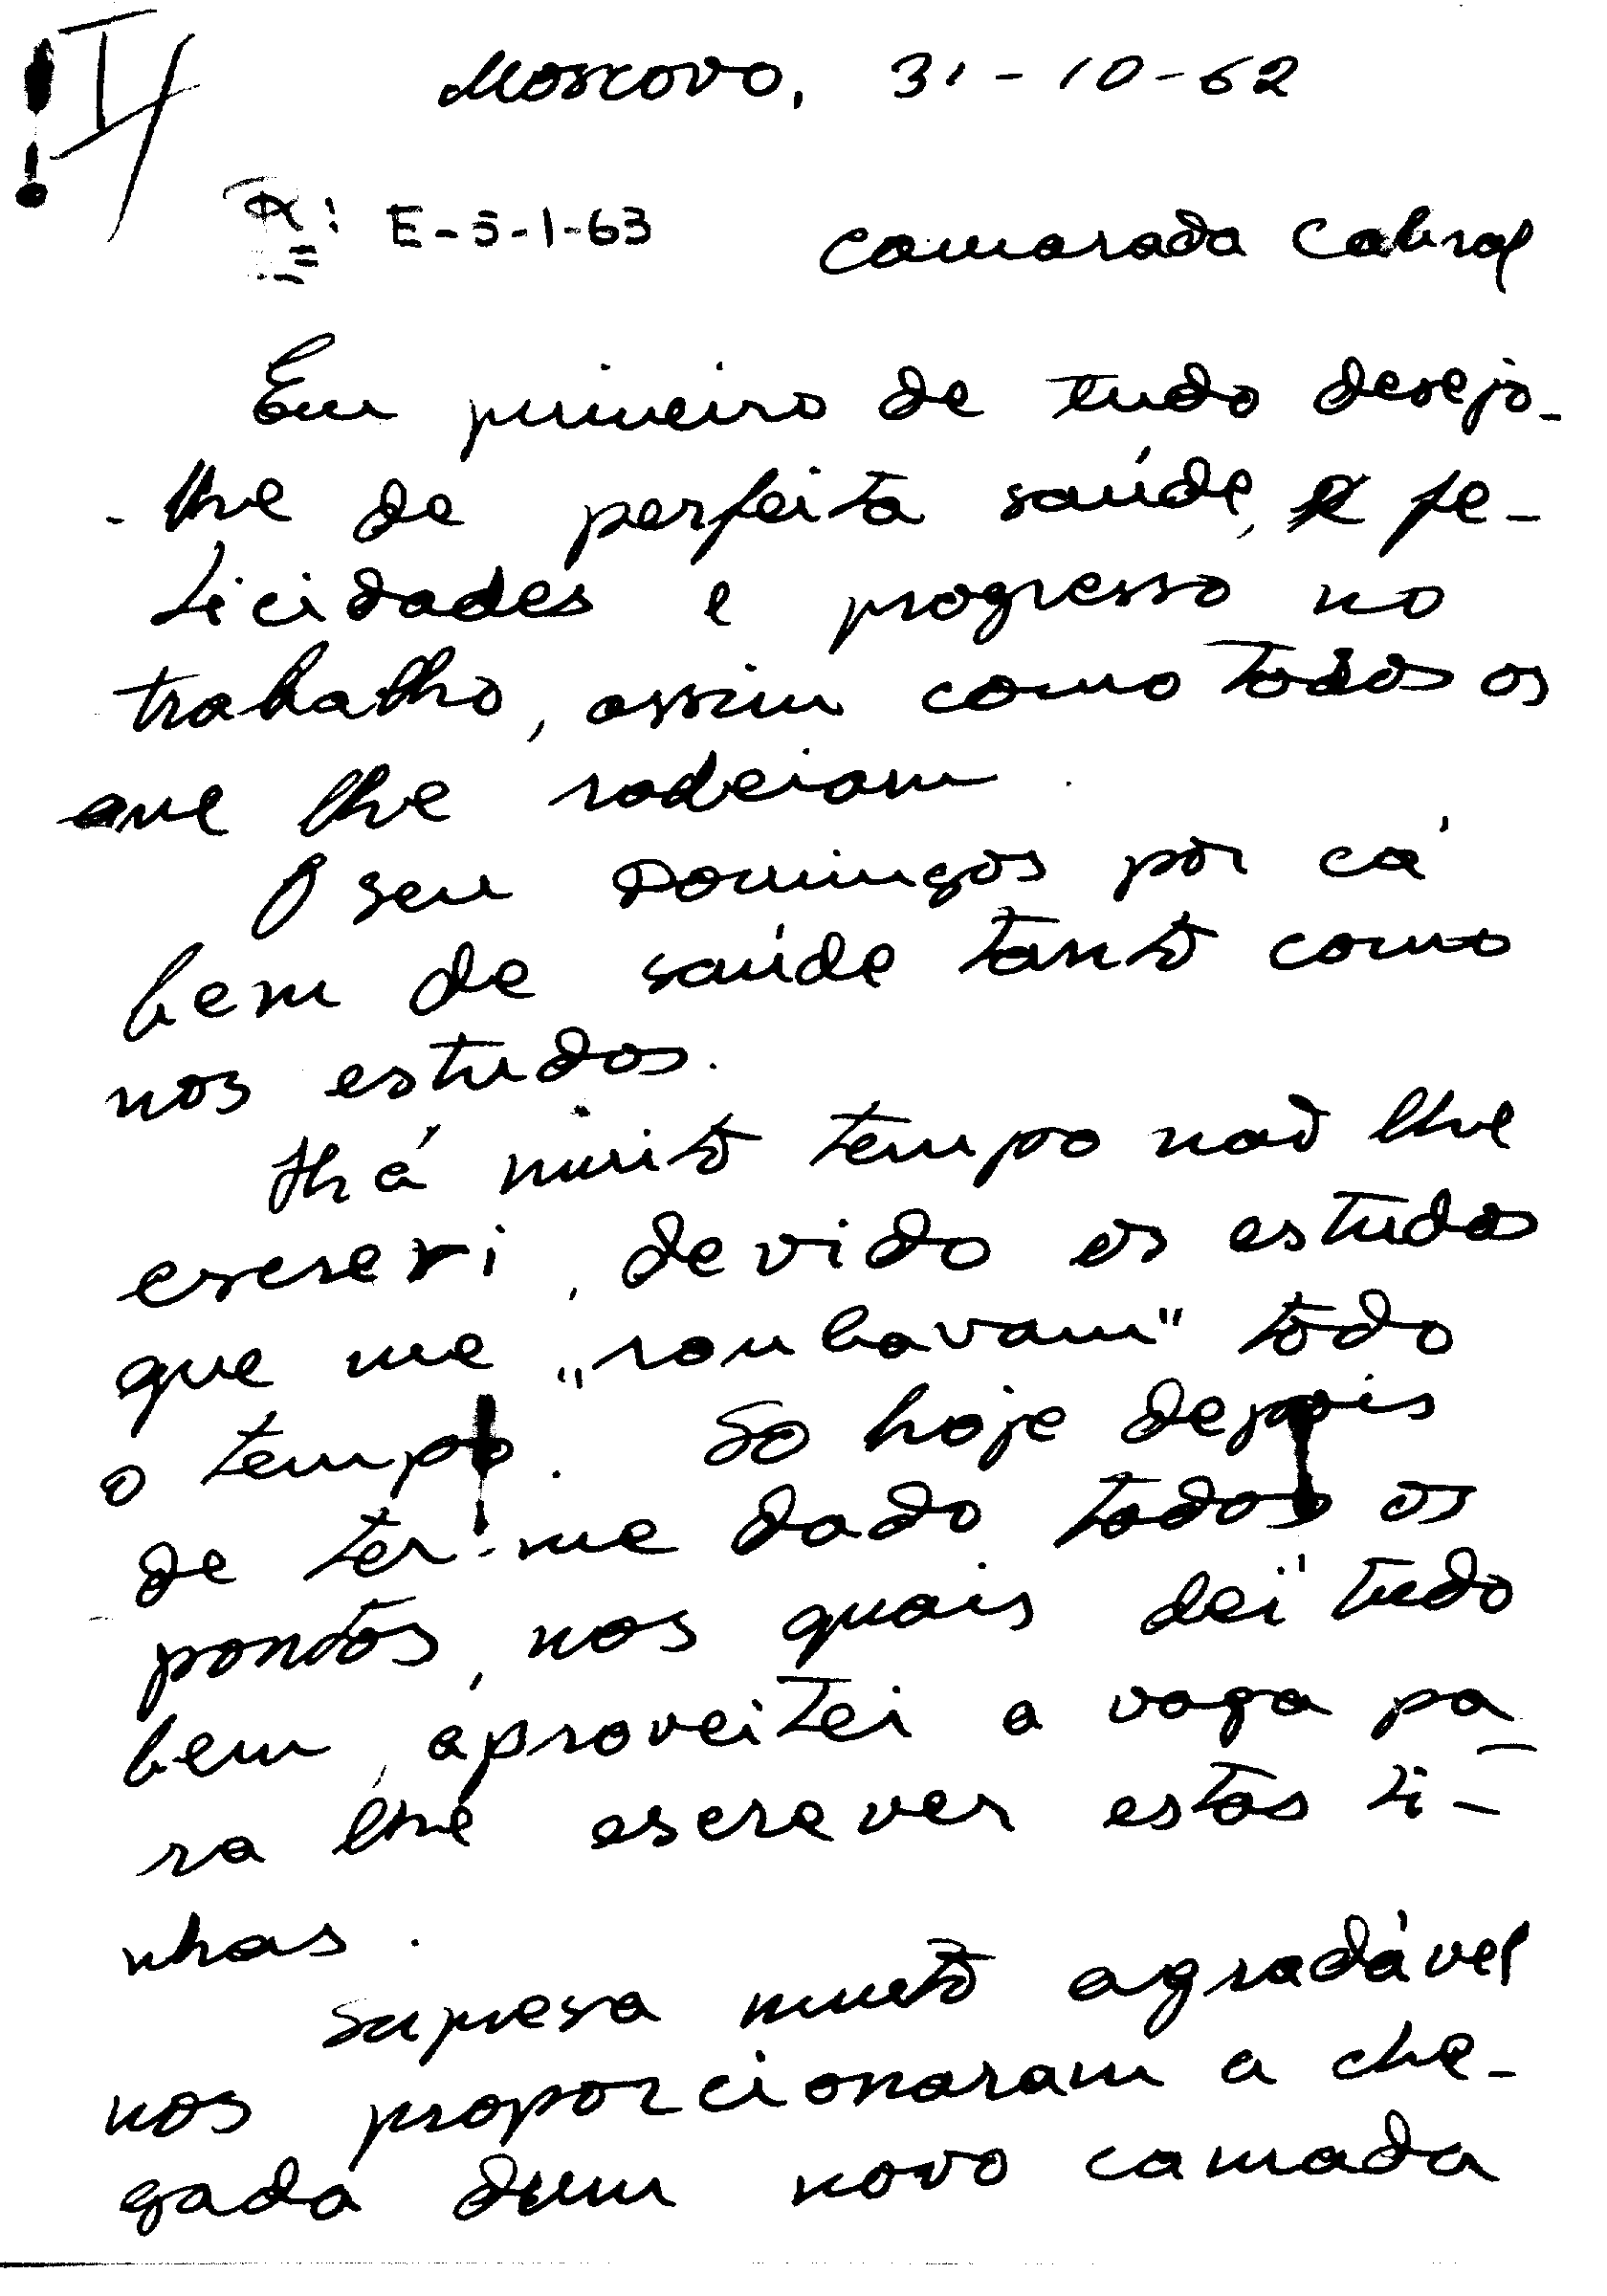 Moscovo, 31-10-62
R: E-5-1-63 Camarada Cabral
Em primeiro de tudo desejo-
-lhe de perfeita saúde, e fe-
licidades e progresso no
trabalho, assim como todos os
que lhe rodeiam.
O seu Domingos por cá
bem de saúde tanto como
nos estudos.
Há muito tempo não lhe
escrevi, devido os estudos
que me "roubavam" todo
o tempo. Só hoje depois
de ter-me dado todos os
pontos, nos quais dei tudo
bem, aproveitei a vaga pa
ra lhe escrever estas li-
nhas.
Supresa muito agradável
nos proporcionaram a che-
gada dum novo camada